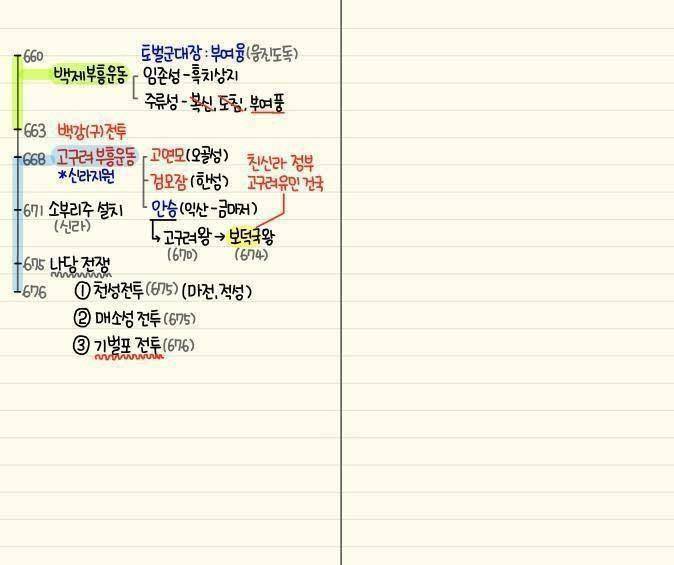 660
토벌군대장 : 부여융(웅진도독)
백제부흥운동
임존성 - 흑치상지
주류성 - 복신, 도침, 부여풍
663 백강(구)전투
668 고구려부흥운동
*신라지원
고연모(오골성)
검모잠(한성)
안승(익산-금마저)
친신라 정부
고구려유민 건국
↳ 고구려왕 → 보덕국왕
(670) (674)
671 소부리주 설치
(신라)
675 나당 전쟁
676
① 천성전투(675) (마전, 적성)
② 매소성 전투(675)
③ 기벌포 전투(676)